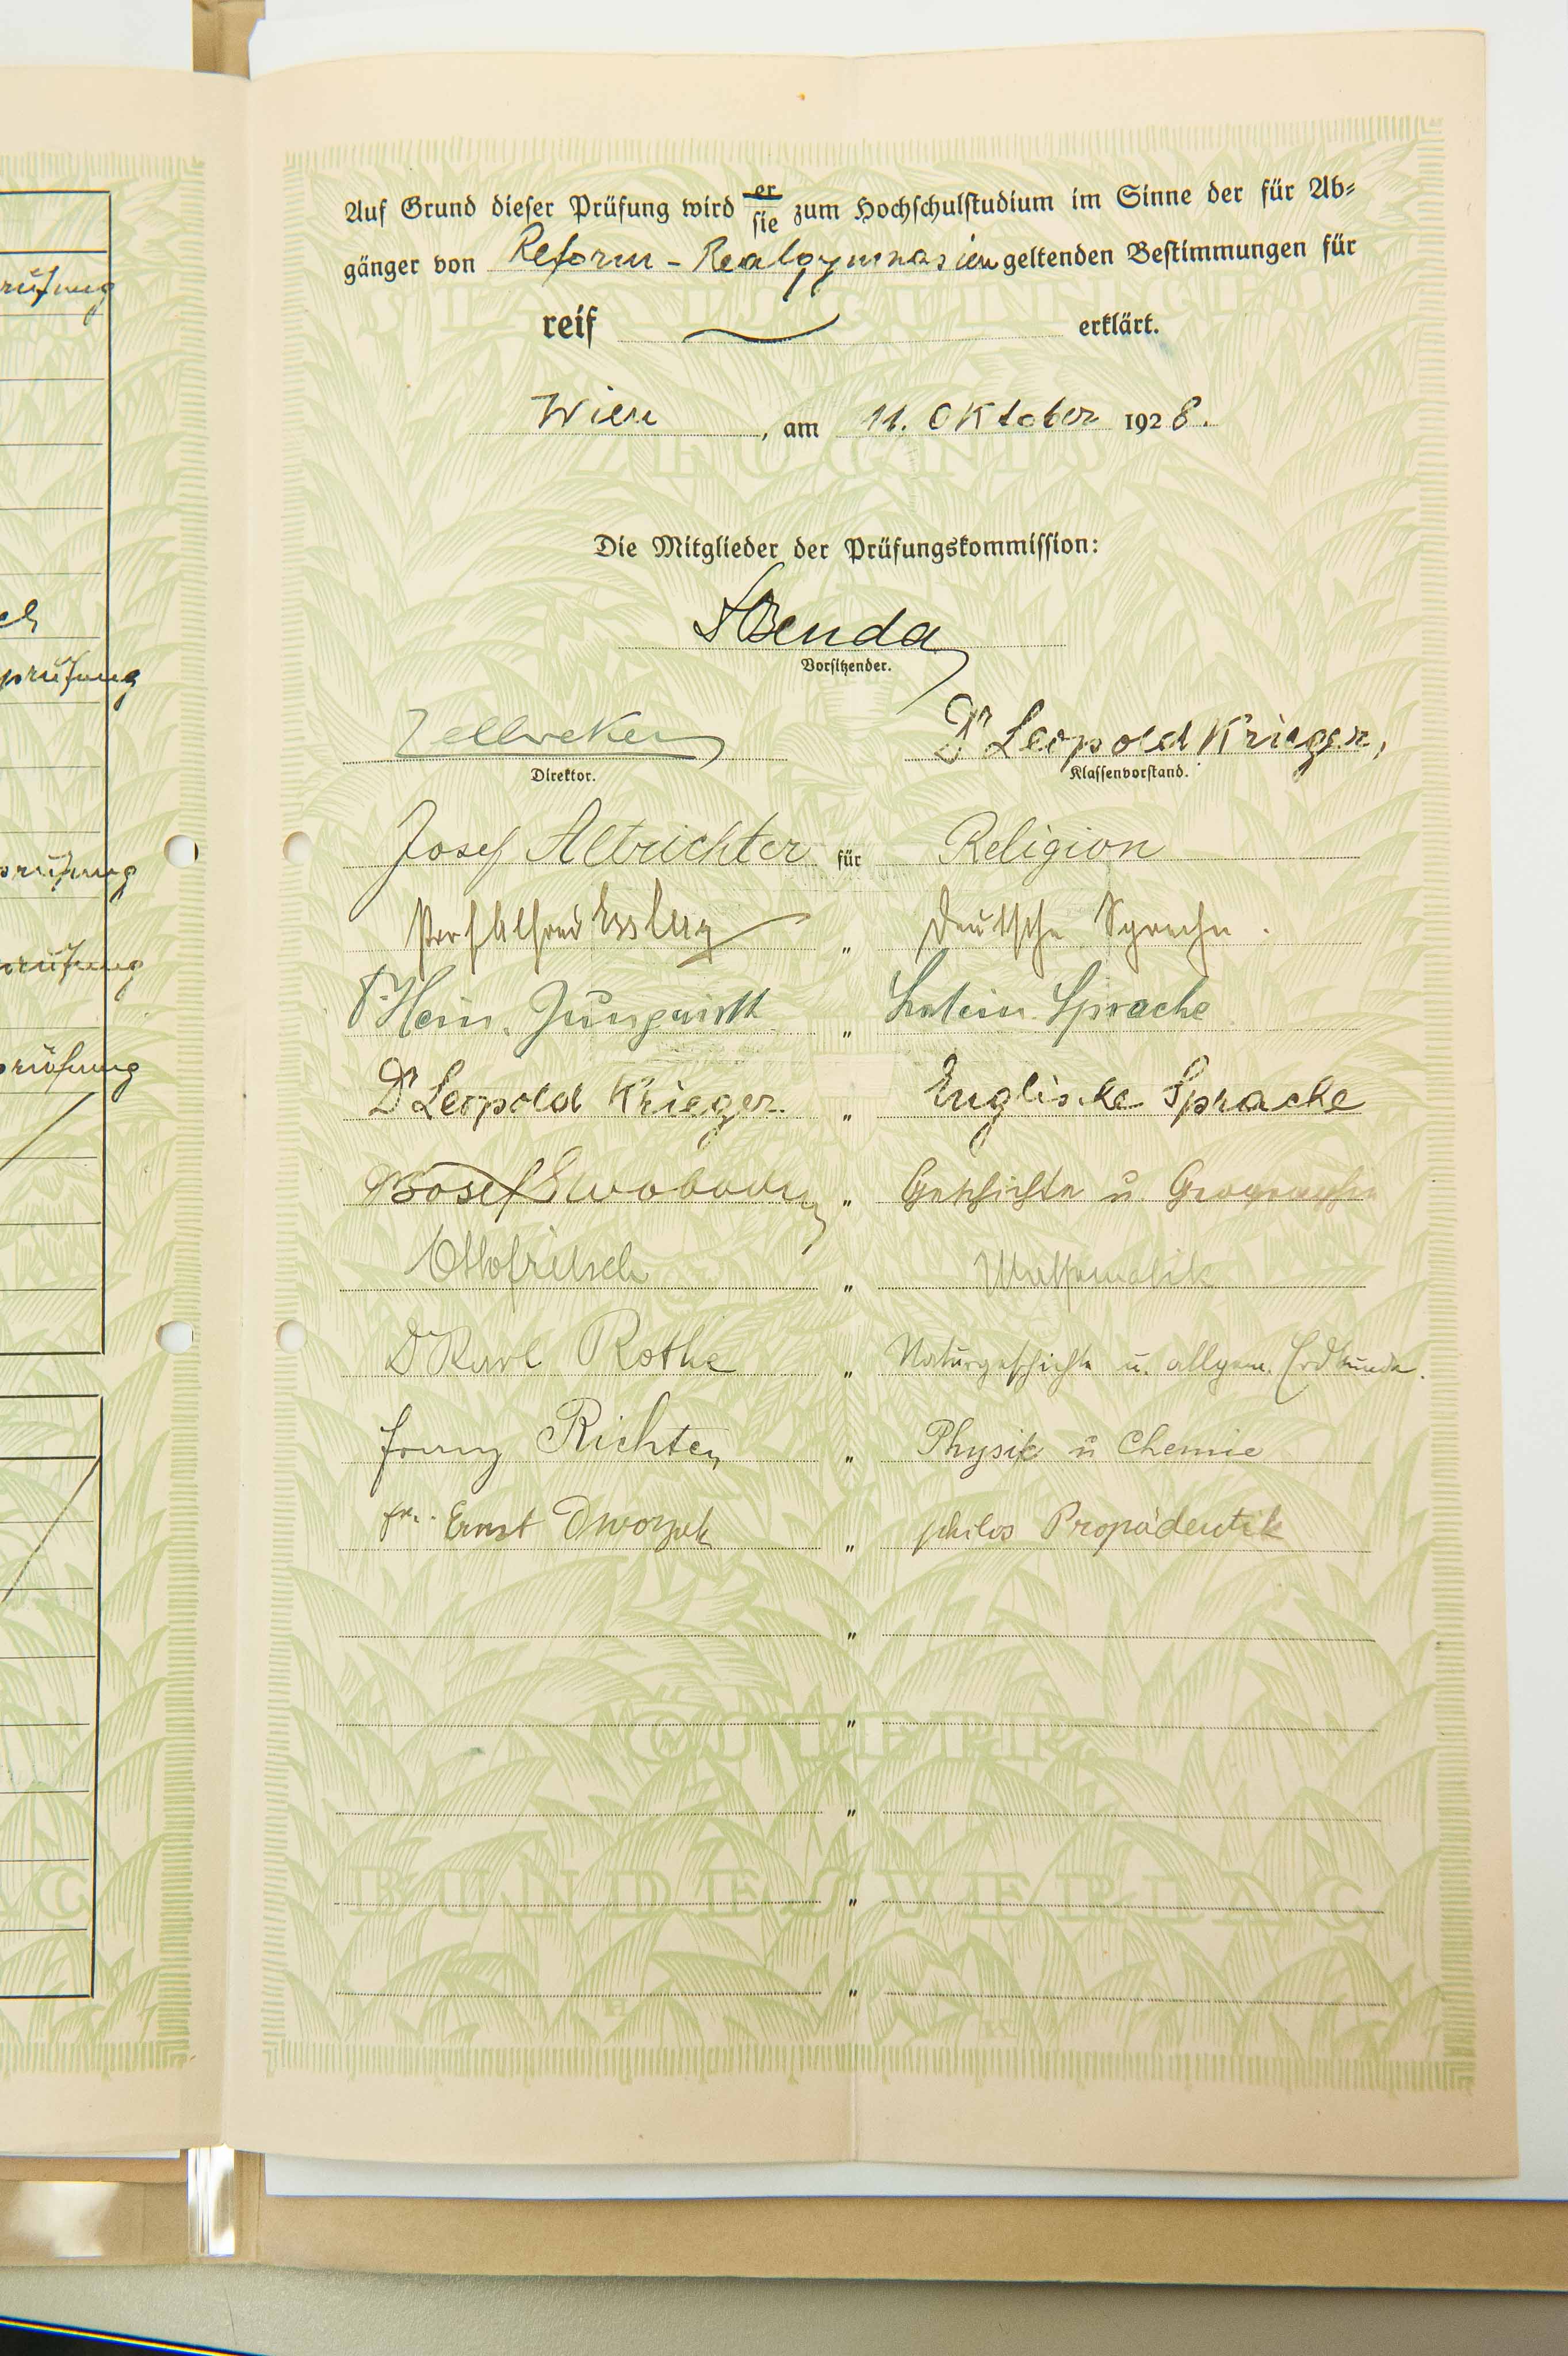 Auf Grund dieser Prüfung wird er sie zum Hochschulstudium im Sinne der für Ab-
gänger von Reform-Realgymnasien geltenden Bestimmungen für
reif erklärt.
Wien, am 11. Oktober 1928.
Die Mitglieder der Prüfungskommission:
Benda
Vorsitzender.
Zellweker Dr Leopold Krieger,
Direktor. Klassenvorstand.
Josef Altrichter für Religion
Prof Alfred " Deutsche Sprache.
Dr Hein. " Latein. Sprache
Dr Leopold Krieger. " Englische Sprache
Josef Swoboda " Geschichte u Geographie
Otto Fritsch " Mathematik
Dr Karl Rothe " Naturgeschichte u. allgem. Erdkunde.
Franz Richter " Physik u Chemie
Ernst Dworzak " philos Propädeutik
"
"
"
"
"
rüfung
prüfung
prüfung
prüfung
prüfung
ÖSTERR.
BUNDESVERLAG